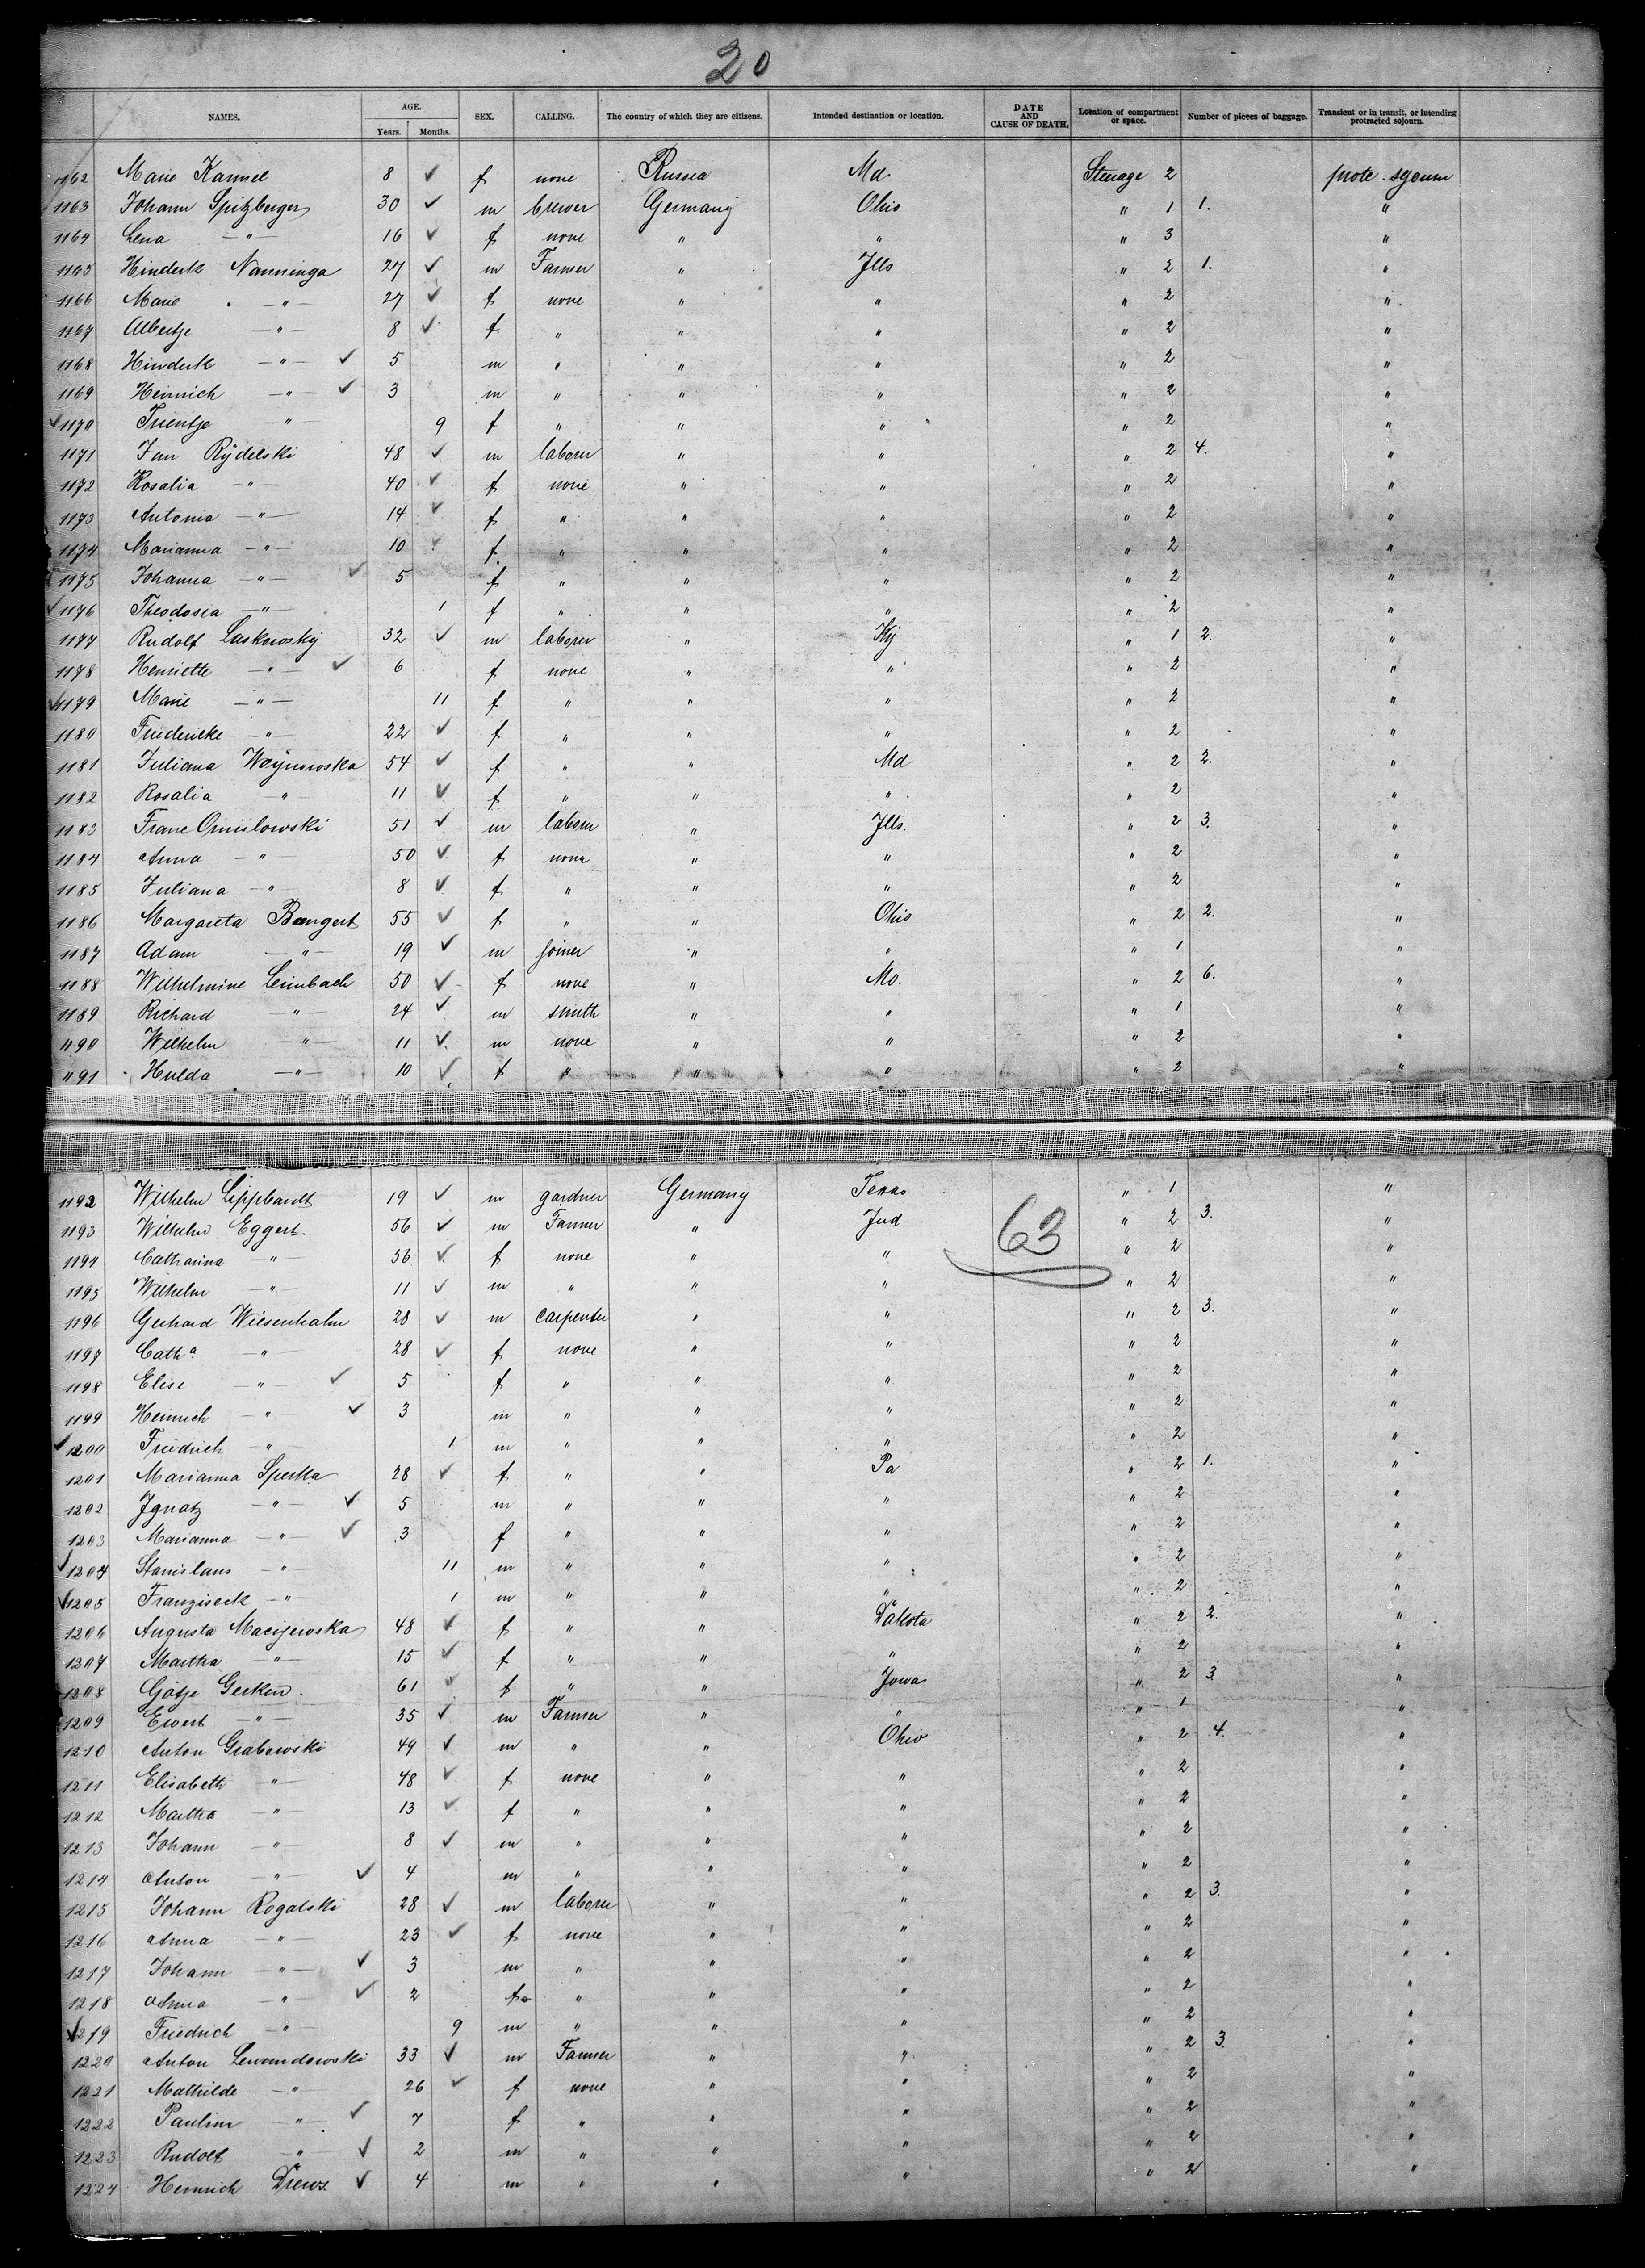 20
NAMES. AGE. Years. Months. SEX. CALLING. The country of which they are citizens. Intended destination or location. DATE AND CAUSE OF DEATH. Location of compartment or space. Number of pieces of baggage. Transient or in transit, or intending protracted sojourn.
1162 Marie Karmel 8 ✓ f none Russia Md. Steerage 2
1163 Johann Spitzberger 30 ✓ m brewer Germany Ohio " 1 1. "
1164 Lena —"— 16 ✓ f none " " " 3 "
1165 Hinderk Nanninga 27 ✓ m Farmer " Ills " 2 1. "
1166 Marie —"— 27 ✓ f none " " " 2 "
1167 Albertje —"— 8 ✓ f " " " " 2 "
1168 Hinderk —"— ✓ 5 m " " " " 2 "
1169 Heinrich —"— ✓ 3 m " " " " 2 "
✓ 1170 Trientje " 9 f " " " " 2 "
1171 Jan Rydelski 48 ✓ m laborer " " " 2 4. "
1172 Rosalia —"— 40 ✓ f none " " " 2 "
1173 Antonia —"— 14 ✓ f " " " " 2 "
1174 Marianna —"— 10 ✓ f " " " " 2 "
1175 Johanna —"— ✓ 5 f " " " " 2 "
✓ 1176 Theodosia —"— 1 f " " " " 2 "
1177 Rudolf Laskowsky 32 ✓ m laborer " Ky " 1 2. "
1178 Henriette —"— ✓ 6 f none " " " 2 "
✓ 1179 Marie —"— 11 f " " " " 2 "
1180 Friedericke —"— 22 ✓ f " " " " 2 "
1181 Juliana 54 ✓ f " " Md " 2 2. "
1182 Rosalia " 11 ✓ f " " " " 2 "
1183 Franc Omislowski 51 ✓ m laborer " Ills. " 2 3. "
1184 Anna —"— 50 ✓ f none " " " 2 "
1185 Juliana —"— 8 ✓ f " " " " 2 "
1186 Margareta Bangert 55 ✓ f " " Ohio " 2 2. "
1187 Adam —"— 19 ✓ m joiner " " " 1 "
1188 Wilhelmine Leimbach 50 ✓ f none " Mo. " 2 6. "
1189 Richard " 24 ✓ m smith " " " 1 "
1190 Wilhelm —"— 11 ✓ m none " " " 2 "
1191 Hulda —"— 10 ✓ f " " " " 2 "
1192 Wilhelm Lipphardt 19 ✓ m gardner Germany Texas " 1 "
1193 Wilhelm Eggert. 56 ✓ m Farmer " Ind 63 " 2 3. "
1194 Catharina —"— 56 ✓ f none " " " 2 "
1195 Wilhelm —"— 11 ✓ m " " " " 2 "
1196 Gerhard Wiesenhahn 28 ✓ m carpenter " " " 2 3. "
1197 Cath.a —"— 28 ✓ f none " " " 2 "
1198 Elise —"— ✓ 5 f " " " " 2 "
1199 Heinrich —"— ✓ 3 m " " " " 2 "
✓ 1200 Friedrich —"— 1 m " " " " 2 "
1201 Marianna Sperka 28 ✓ f " " Pa " 2 1. "
1202 Ignatz —"— ✓ 5 m " " " " 2 "
1203 Marianna —"— ✓ 3 f " " " " 2 "
✓ 1204 Stanislaus —"— 11 m " " " " 2 "
✓ 1205 Franziseck —"— 1 m " " " " 2 "
1206 Augusta Macijewska 48 ✓ f " " Dakota " 2 2. "
1207 Martha —"— 15 ✓ f " " " " 2 "
1208 Götje Gerken. 61 ✓ f " " Iowa " 2 3. "
1209 Ewert —"— 35 ✓ m Farmer " " " 1 "
1210 Anton Grabowski 49 ✓ m " " Ohio " 2 4. "
1211 Elisabeth —"— 48 ✓ f none " " " 2 "
1212 Martha —"— 13 ✓ f " " " " 2 "
1213 Johann —"— 8 ✓ m " " " " 2 "
1214 Anton —"— ✓ 4 m " " " " 2 "
1215 Johann Rogalski 28 ✓ m laborer " " " 2 3. "
1216 Anna —"— 23 ✓ f none " " " 2 "
1217 Johann —"— ✓ 3 m " " " " 2 "
1218 Anna —"— ✓ 2 f " " " " 2 "
✓ 1219 Friedrich —"— 9 m " " " " 2 "
1220 Anton Lewandowski 33 ✓ m Farmer " " " 2 3. "
1221 Mathilde —"— 26 ✓ f none " " " 2 "
1222 Pauline —"— ✓ 7 f " " " " 2 "
1223 Rudolf —"— ✓ 2 m " " " " 2 "
1224 Heinrich Drews. ✓ 4 m " " " " 2 "